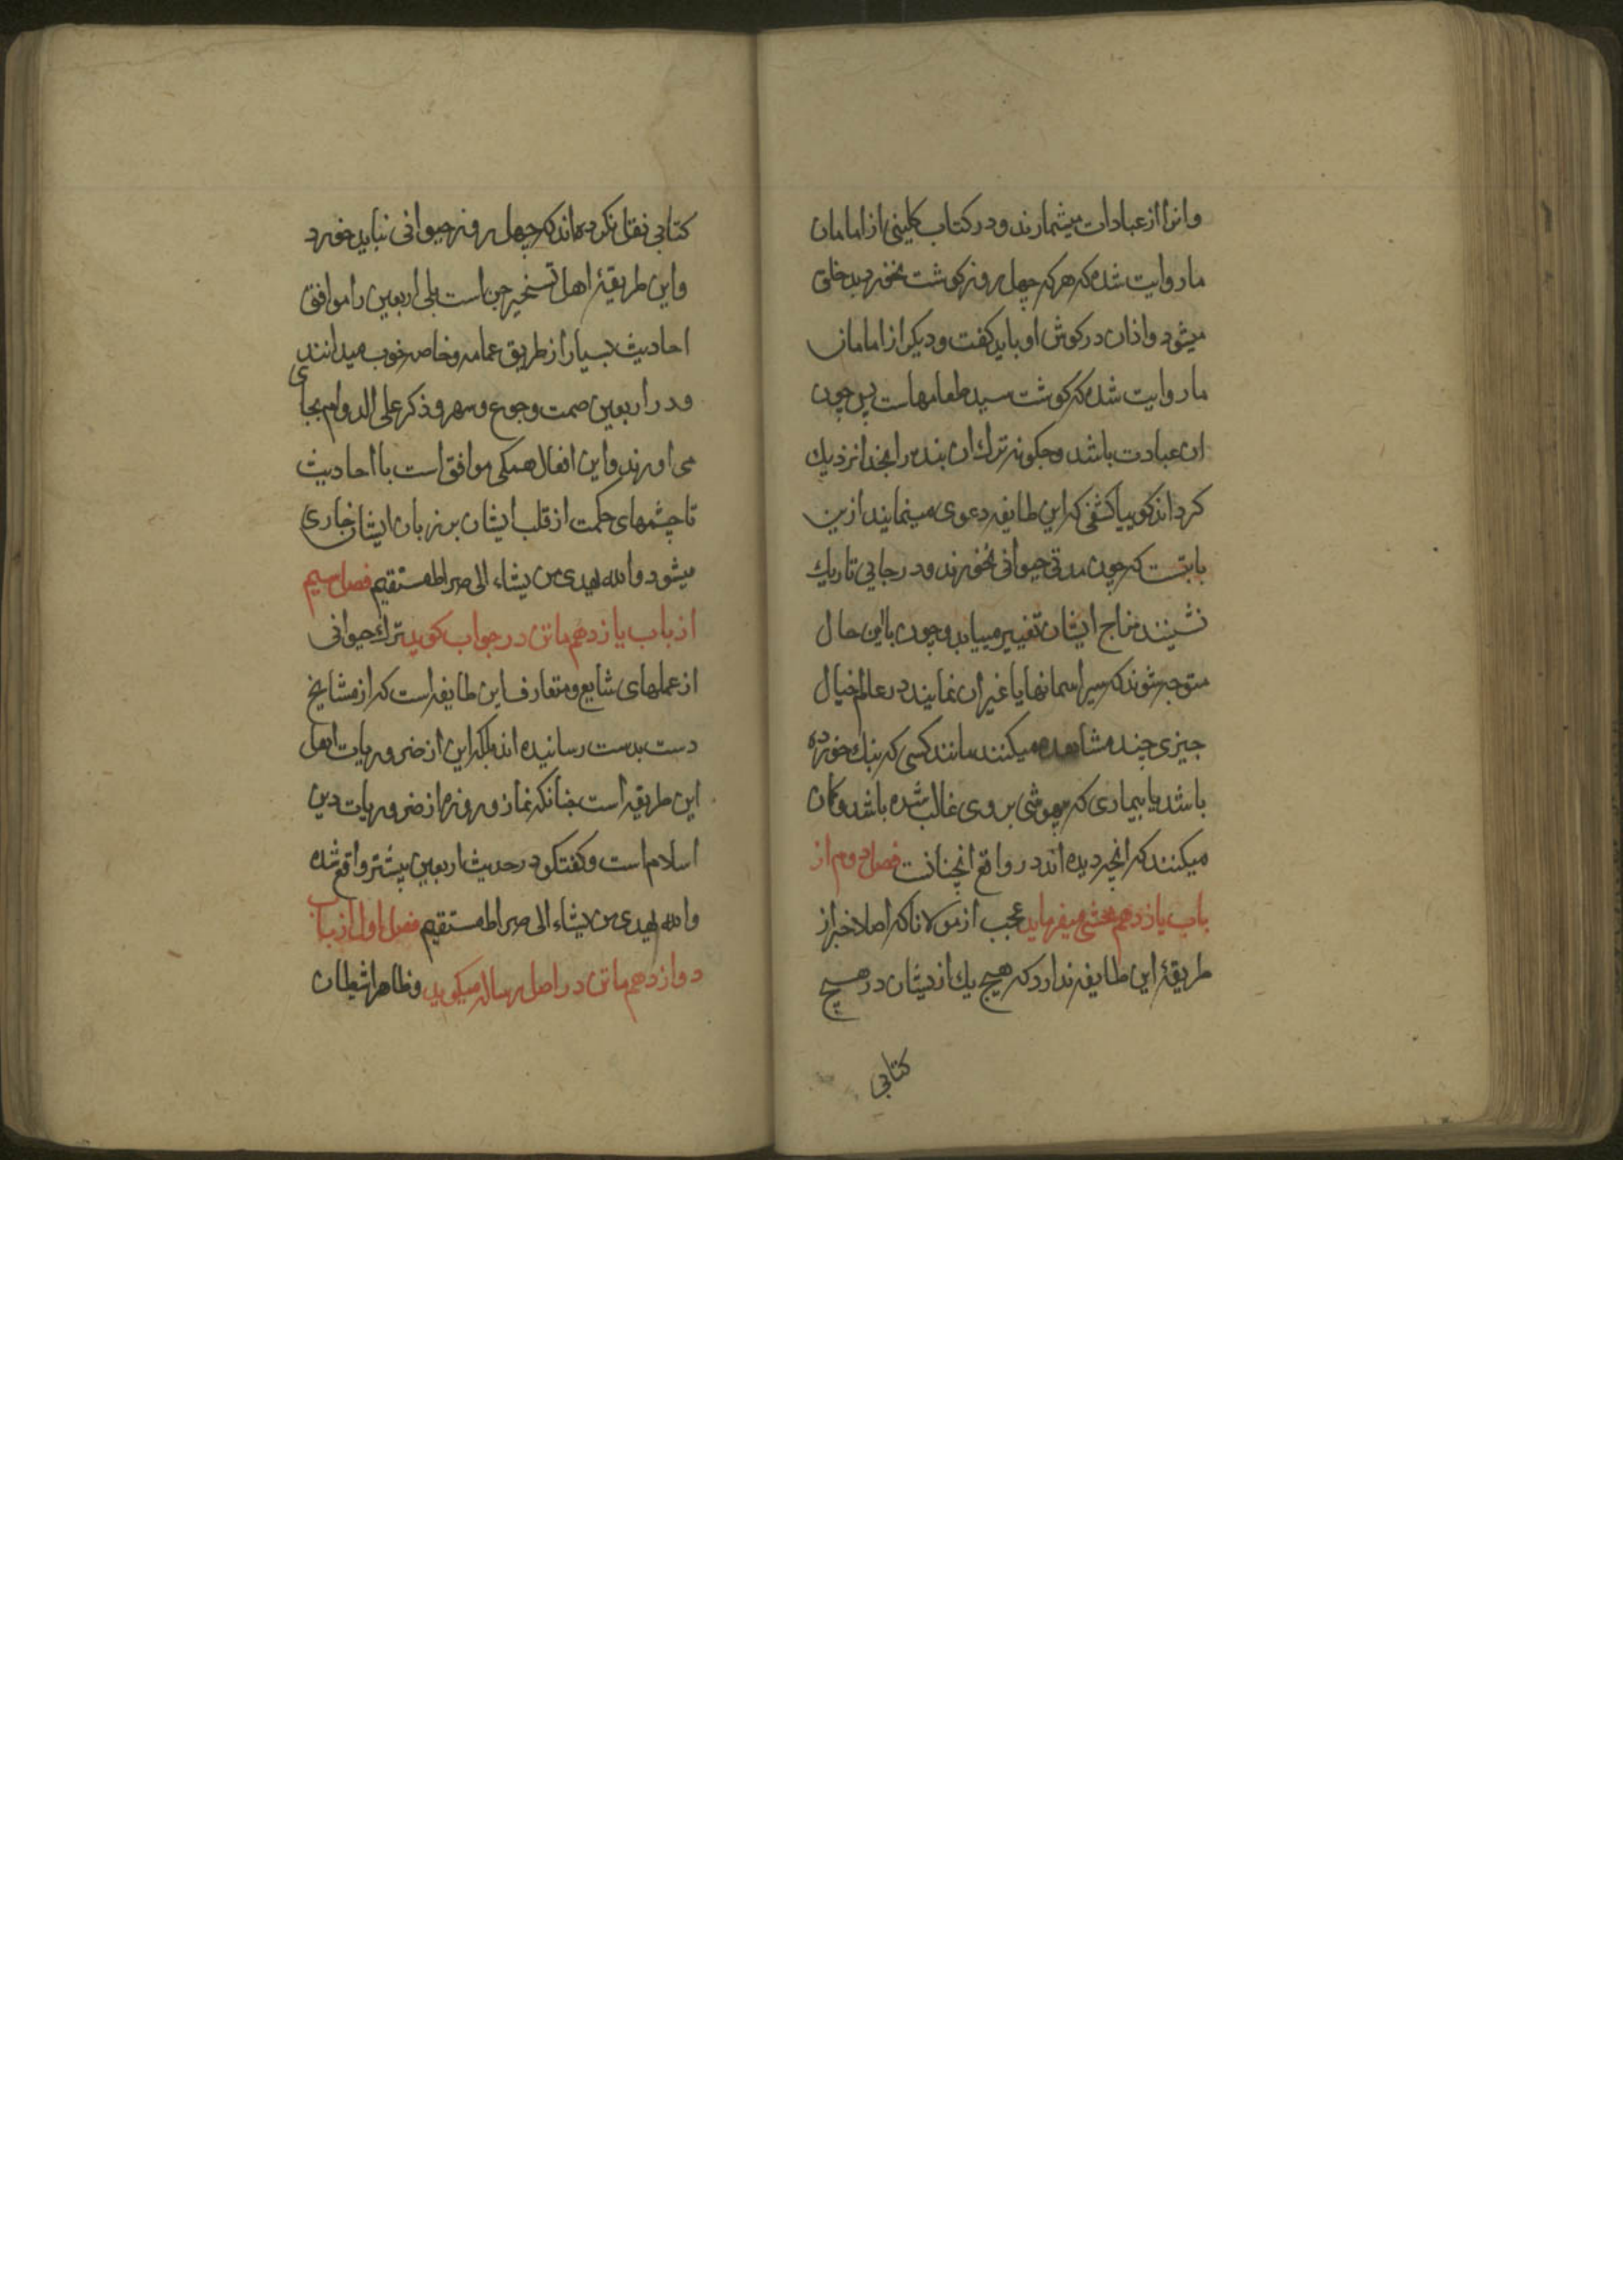 وانرا از عبادات میشمارند و در کتاب کلینی از امامان
ما روایت شده که هرکه چهل روز کوشت نخورد بد خلق
میشود و اذان در کوش او باید کفت و دیکر از امامان
ما روایت شده که کوشت سید طعامهاست پس چون
ان عبادت باشد و چکونه ترک ان بنده را بخدا نزدیک
کرداند کوییا کشفی که این طایفه دعوی مینمایند ازین
بابتست که چون مدتی حیوانی نخورند و در جایی تاریک
نشینند مزاج ایشان تغییر مییابد و چون باین حال
متوجه شوند که سیر اسمانها یا غیر ان نمایند در عالم خیال
چیزی چند مشاهده میکنند مانند کسی که بنک خورده
باشد یا بیماری که بیهوشی بروی غالب شده باشد و کمان
میکنند که انچه دیده اند در واقع انچنانست فصل دوم از
باب یازدهم محشی میفرماید عجب از مولانا که اصلا خبر از
طریقهٔ این طایفه ندارد که هیچ یک ازیشان در هیچ
کتابی
کتابی نقل نکرده اند که چهل روز حیوانی نباید خورد
واین طریقهٔ اهل تسخیر جن است بلی اربعین را موافق
احادیث بسیار از طریق عامه و خاصه خوب میدانند
و در اربعین صمت و جوع و سهر و ذکر علی الدوام بجای
می اورند و این افعال همکی موافق است با احادیث
تا چشمهای حکمت از قلب ایشان بر زبان ایشان جاری
میشود والله یهدی من یشاء الی صراط مستقیم فصل سیم
از باب یازدهم ماتن در جواب کوید ترک حیوانی
از عملهای شایع و متعارف این طایفه است که از مشایخ
دست بدست رسانیده اند بلکه این از ضروریات اهل
این طریقه است چنانکه نماز و روزه از ضروریات دین
اسلام است و کفتکو در حدیث اربعین پیشتر واقع شده
والله یهدی من یشاء الی صراط مستقیم فصل اول از باب
دوازدهم ماتن در اصل رساله میکوید و ظاهرا شیطان